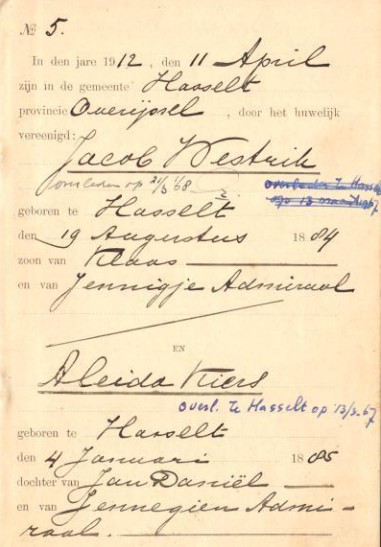 № 5.
In den jare 1912, den 11 April
zijn in de gemeente Hasselt
provincie Overijsel, door het huwelijk
vereenigd:
Jacob Westrik
overleden op 21/5 '68
overleden te Hasselt
op 13 maart 1967
geboren te Hasselt
den 19 Augustus 1884
zoon van Klaas
en van Jennigje Admiraal
EN
Aleida Kiers
overl. te Hasselt op 13/3-67
geboren te Hasselt
den 4 Januari 1885
dochter van Jan Daniël
en van Jennegien Admi-
raal.